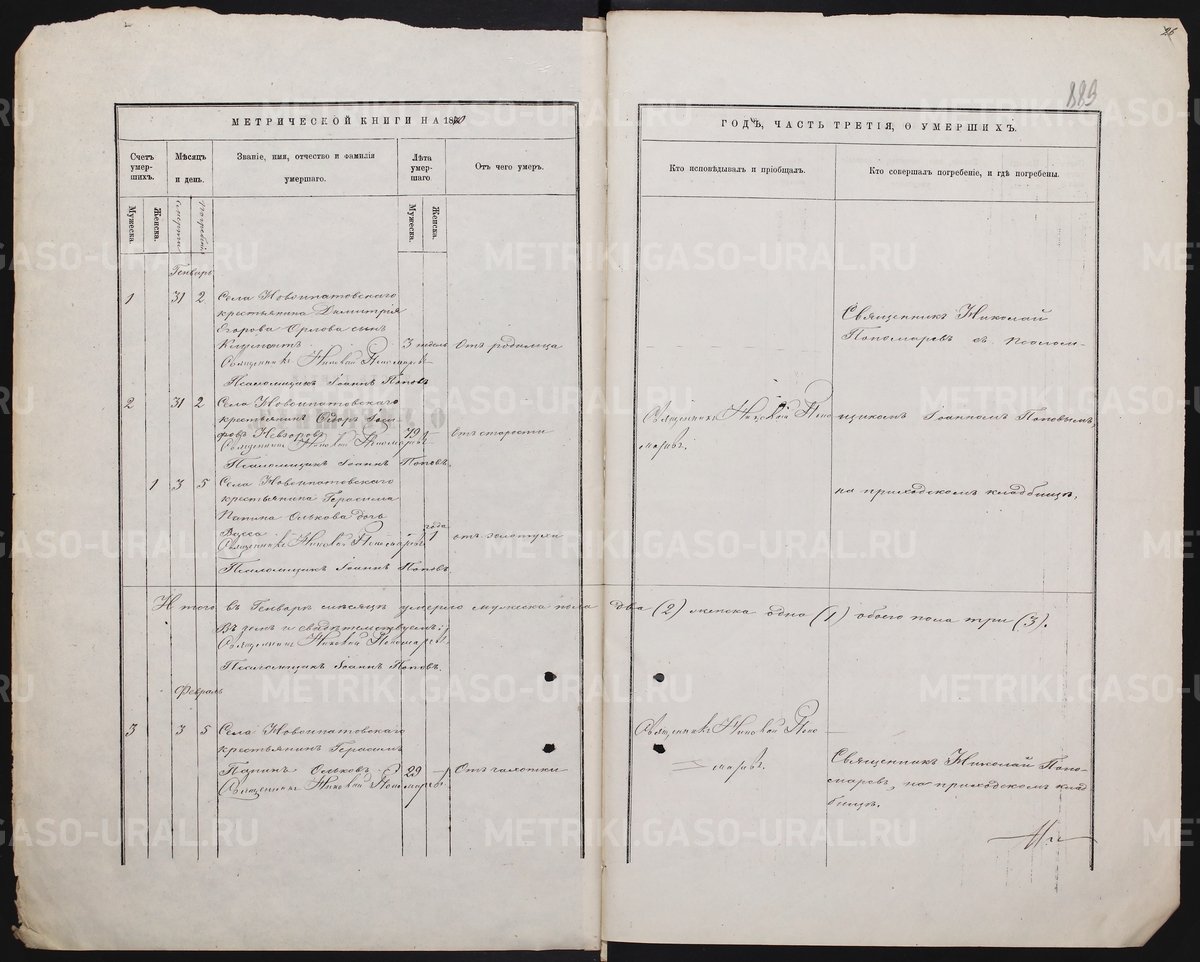 26
889
МЕТРИЧЕСКОЙ КНИГИ НА 1880
ГОДЪ, ЧАСТЬ ТРЕТІЯ, О УМЕРШИХЪ.
Счетъ умер-
шихъ.
Мѣсяцъ
и день.
Званіе, имя, отчество и фамилія
умершаго.
Лѣта
умер-
шаго
Отъ чего умеръ.
Кто исповѣдывалъ и пріобщалъ.
Кто совершалъ погребеніе, и гдѣ погребены.
Мужеска.
Женска.
Смерти
Погребенія
Мужеска.
Женска.
Генварь
1 31 2 Села Новоипатовскаго
крестьянина Димитрія
Егорова Орлова сынъ
Климентъ 3 недѣль Отъ родимца
Священникъ Николай Пономаревъ
Псаломщикъ Іоаннъ Поповъ
2 31 2 Села Новоипатовскаго
крестьянинъ Сидоръ Іоси-
фовъ Невзоровъ 79 Отъ старости
Священникъ Николай Пономаревъ
Псаломщикъ Іоаннъ Поповъ.
1 3 5 Села Новоипатовскаго
крестьянина Герасима
Папина Олькова дочь
Васса 1 года отъ золотухи
Священникъ Николай Пономаревъ
Псаломщикъ Іоаннъ Поповъ
Священникъ Николай Поно
маревъ.
Священникъ Николай
Пономаревъ съ псалом-
щикомъ Іоанномъ Поповымъ,
на приходскомъ кладбищѣ.
Итого въ Генварѣ мѣсяцѣ умерло мужеска пола два (2) женска одна (1) обоего пола три (3).
Священникъ Николай Пономаревъ
Псаломщикъ Іоаннъ Поповъ.
Февраль
3 3 5 Села Новоипатовскаго
крестьянинъ Герасимъ
Папинъ Ольковъ 29 Отъ чахотки
Священникъ Николай Пономаревъ
Священникъ Николай Поно
маревъ.
Священникъ Николай Поно-
маревъ, на приходскомъ клад-
бищѣ.
METRIKI.GASO-URAL.RU